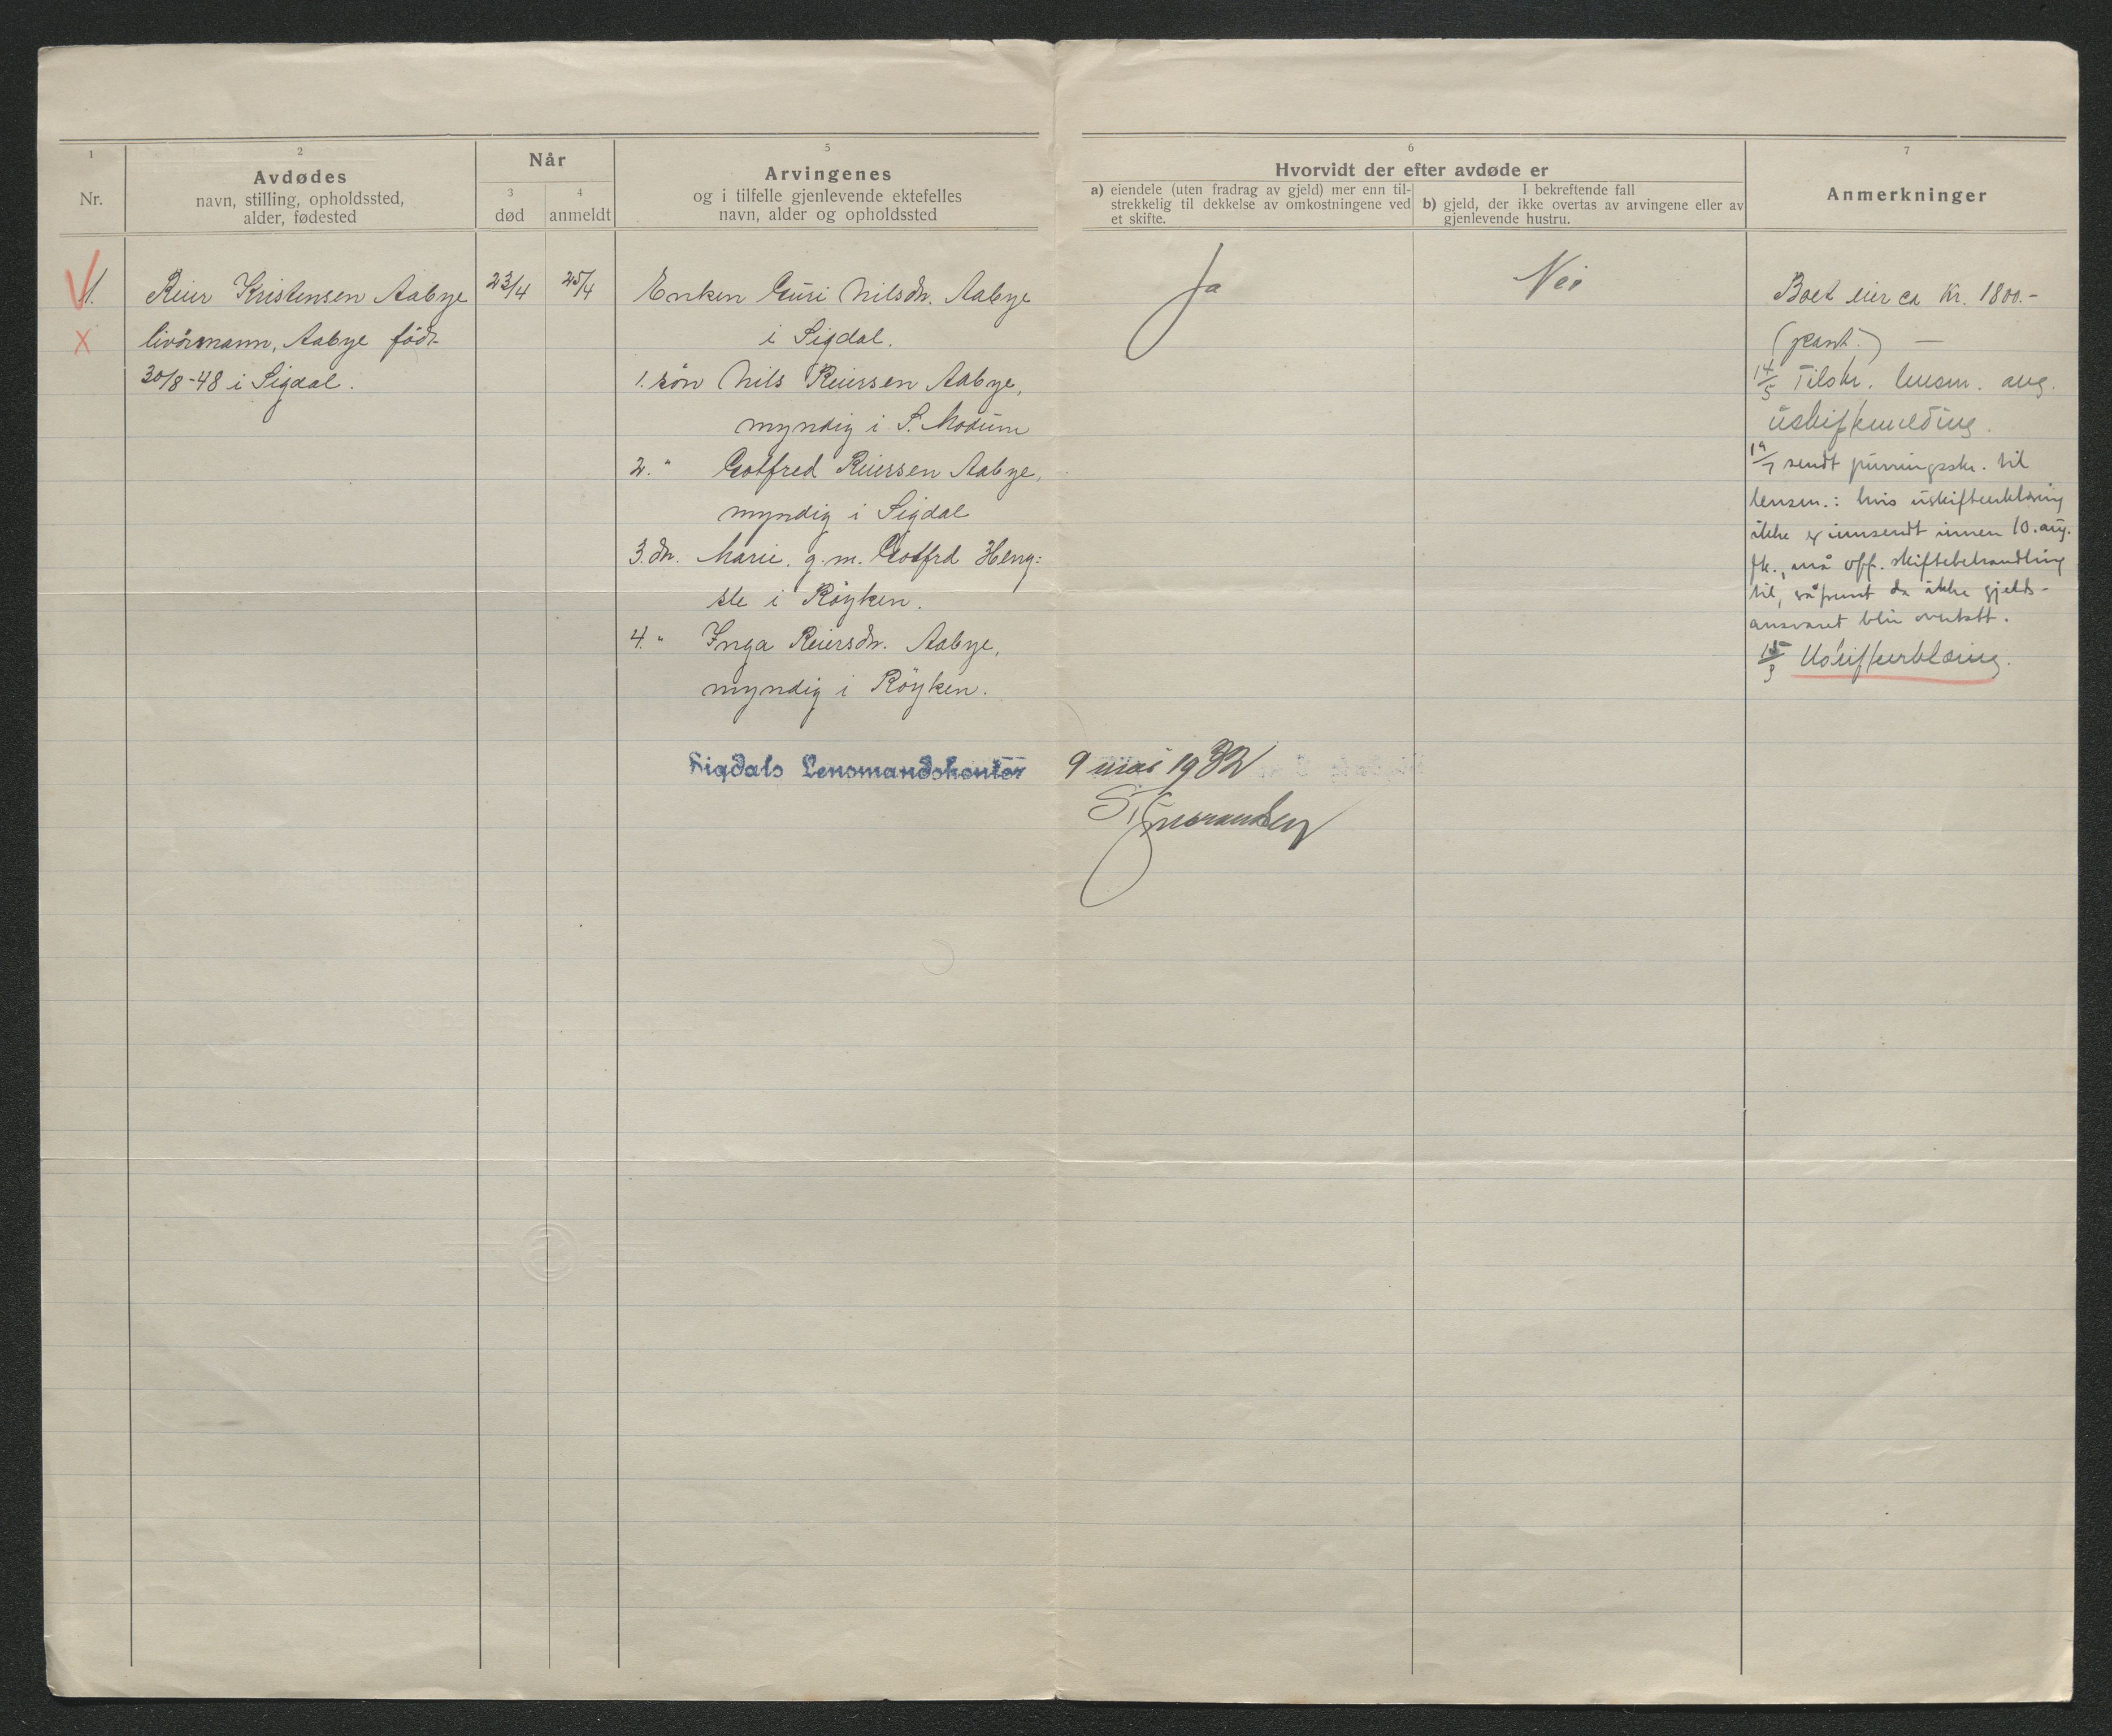 1
Nr.
2
Avdødes
navn, stilling, opholdssted,
alder, fødested
Når
3
død
4
anmeldt
5
Arvingenes
og i tilfelle gjenlevende ektefelles
navn, alder og opholdssted
6
Hvorvidt der efter avdøde er
a) eiendele (uten fradrag av gjeld) mer enn til-
strekkelig til dekkelse av omkostningene ved
et skifte.
I bekreftende fall
b) gjeld, der ikke overtas av arvingene eller av
gjenlevende hustru.
7
Anmerkninger
1.
Reier Kristensen Aabye
livörsmann, Aabye född
30/8-48 i Sigdal.
23/4
25/4
Enken Guri Nilsdr. Aabye
i Sigdal.
1. sön Nils Reiersen Aabye,
myndig i S. Modum
2. " Gotfred Reiersen Aabye,
myndig i Sigdal
3. dr. Marie, g.m. Gotfrd Heng:
sle i Röyken.
4. " Inga Reiersdr. Aabye,
myndig i Röyken.
Ja
Nei
Boet eier ca Kr. 1800.-
(pant.) —
14/5 Tilskr. lensm. ang.
uskiftemelding.
19/7 sendt purringsskr. til
lensm.: hvis uskifteerklæring
ikke er innsendt innen 10. aug.
fk., må off. skiftebehandling
til, såfremt da ikke gjelds-
ansvaret blir overtatt.
Uskifteerklæring.
Sigdals Lensmandskontor
9 mai 1932